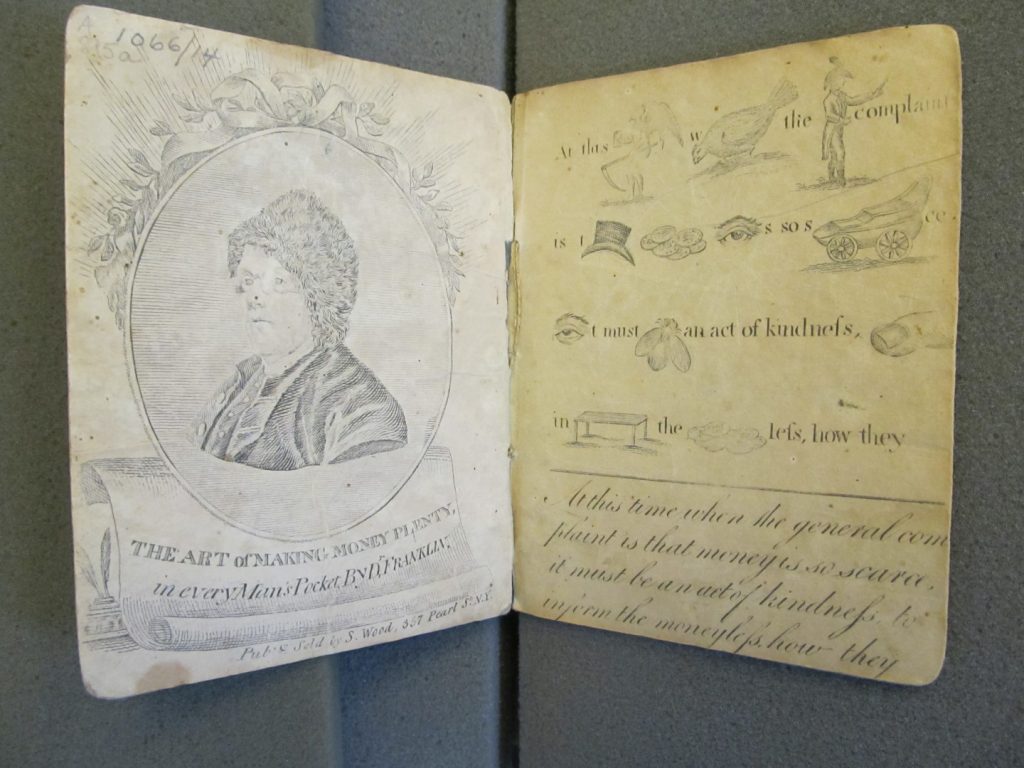 1066/14
THE ART of MAKING MONEY PLENTY,
in every Man's Pocket, By Dr. FRANKLIN;
Pub. & Sold by S. Wood, 357 Pearl St. N.Y.
At this w the complain
is t s so s ce.
t must an act of kindneſs,
in the leſs, how they
At this time when the general com
plaint is that money is so scarce,
it must be an act of kindneſs, to
inform the moneyleſs, how they